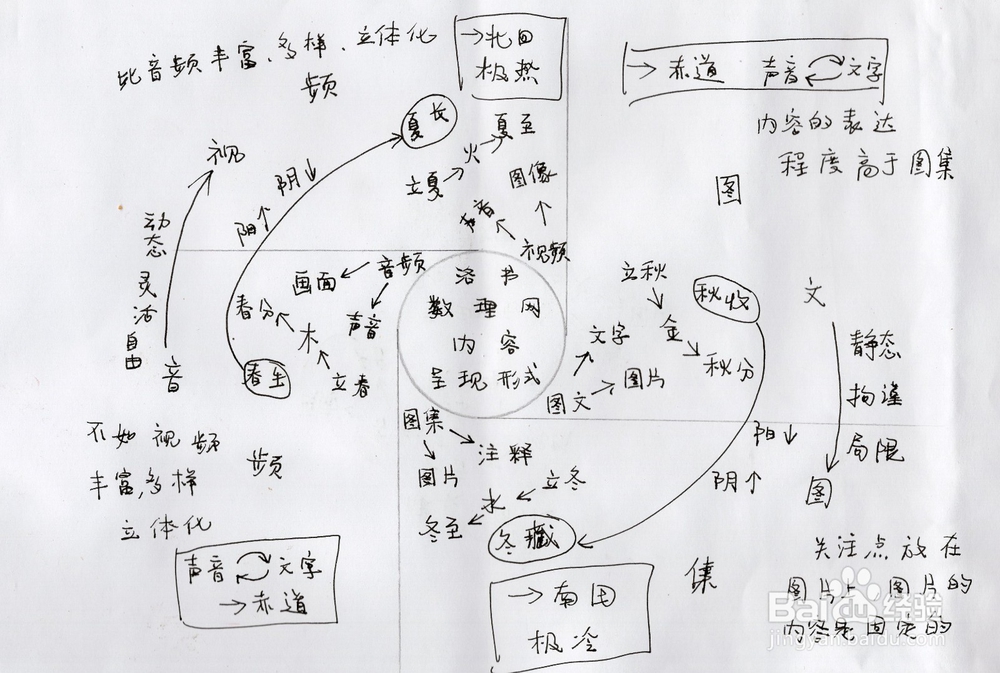 比音频丰富、多样、立体化
频
→北回
极热
→赤道 声音 文字
内容的表达
程度高于图集
图
夏长
夏至
火
立夏
图像
声音
视频
视
阴↓
阳↑
动态
灵活
自由
音
春分
画面
音频
声音
木
立春
春生
洛书
数理网
内容
呈现形式
立秋
金
秋分
秋收
文字
图片
图文
文
静态
拘谨
局限
图
阳↓
阴↑
图集
注释
图片
立冬
水
冬至
冬藏
不如视频
丰富、多样
立体化
频
声音 文字
→赤道
→南回
极冷
集
关注点放在
图片上,图片的
内容是固定的
Baidu经验
jingyan.baidu.com